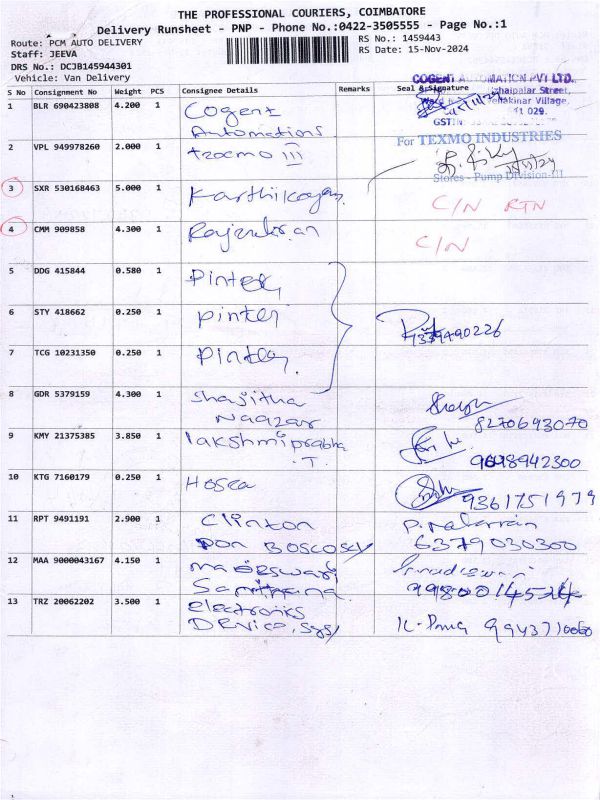 THE PROFESSIONAL COURIERS, COIMBATORE
Delivery Runsheet - PNP - Phone No.:0422-3505555 - Page No.:1
Route: PCM AUTO DELIVERY
Staff: JEEVA
DRS No.: DCJB145944301
Vehicle: Van Delivery
RS No.: 1459443
RS Date: 15-Nov-2024
S No Consignment No Weight PCS Consignee Details Remarks Seal & Signature
COGENT AUTOMATION PVT LTD.
Street,
Vellakinar Village,
641 029.
GSTIN
1 BLR 690423808 4.200 1 Cogent Automations
2 VPL 949978260 2.000 1 III
For TEXMO INDUSTRIES
Stores - Pump Division-III
3 SXR 530168463 5.000 1 Karthikayan C/N RTN
4 CMM 909858 4.300 1 C/N
5 DDG 415844 0.580 1 Pintey
6 STY 418662 0.250 1 pintey
7 TCG 10231350 0.250 1 Pintey.
8 GDR 5379159 4.300 1 Shajitha Naazar 8270693070
9 KMY 21375385 3.850 1 lakshmiprabha .T.
10 KTG 7160179 0.250 1 Hosea 9361751979
11 RPT 9491191 2.900 1 Clinton Don Boscosy 6379030300
12 MAA 9000043167 4.150 1 maheswari
13 TRZ 20062202 3.500 1 electronics Device, sys 9943710060